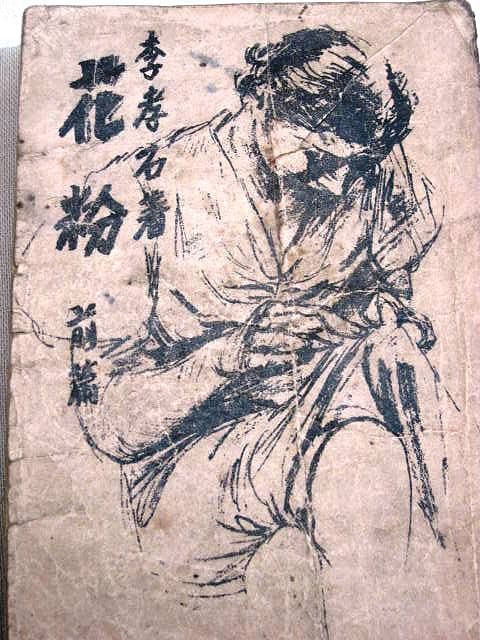 李孝石著
花粉
前篇